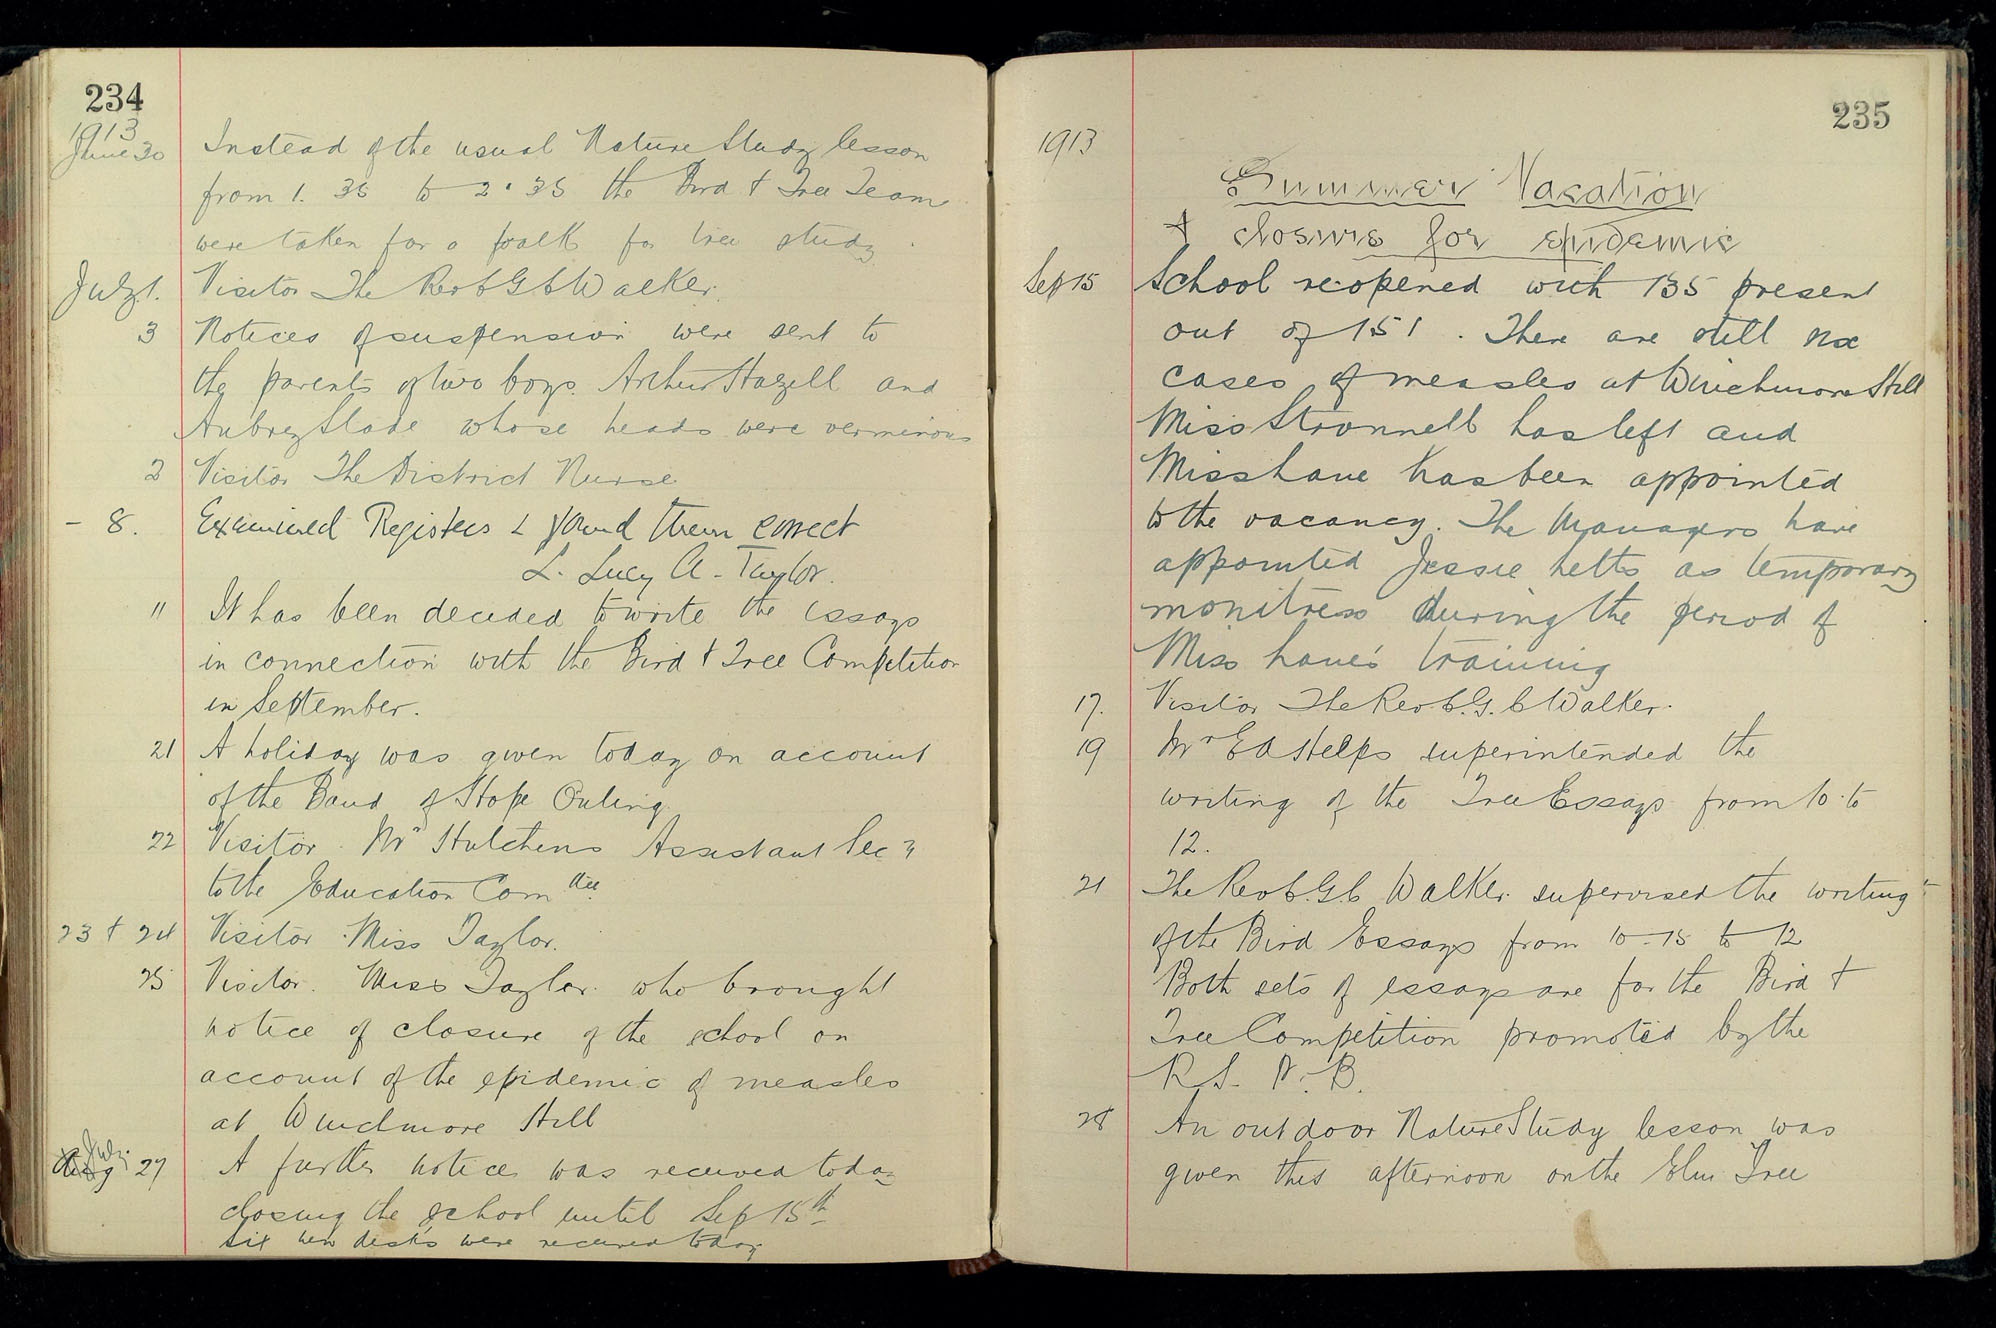 234
1913
June 30 Instead of the usual Nature Study lesson
from 1. 35 to 2.35 the Bird & Tree Team
were taken for a walk for tree study.
July 1. Visitor The Rev C G C Walker.
3 Notices of suspension were sent to
the parents of two boys. Arthur Hazell and
Aubrey Slade whose heads were verminous
3 Visitor The District Nurse
- 8. Examined Registers & found them correct
L. Lucy A. Taylor.
11 It has been decided to write the essays
in connection with the Bird & Tree Competition
in September.
21 A holiday was given today on account
of the Band of Hope Outing.
22 Visitor. Mr Hutchens Assistant Secy
to the Education Comttee.
23 & 24 Visitor. Miss Taylor.
25 Visitor. Miss Taylor. who brought
notice of closure of the school on
account of the epidemic of measles
at Winchmore Hill
July 27 A further notice was received today
closing the school until Sep 15th
Six new desks were received today
235
1913
Summer Vacation
& closure for epidemic
Sep 15 School reopened with 135 present
out of 151. There are still six
cases of measles at Winchmore Hill
Miss Stronnell has left and
Miss Lane has been appointed
to the vacancy. The Managers have
appointed Jessie as temporary
monitress during the period of
Miss Lane's training
17. Visitor The Rev C. G. C Walker.
19 Mr E A Helps superintended the
writing of the Tree Essays from 10 to
12.
21 The Rev C. G. C Walker supervised the writing
of the Bird Essays from 10-15 to 12
Both sets of essays are for the Bird &
Tree Competition promoted by the
R. S. P. B.
28 An outdoor Nature Study lesson was
given this afternoon on the Elm Tree